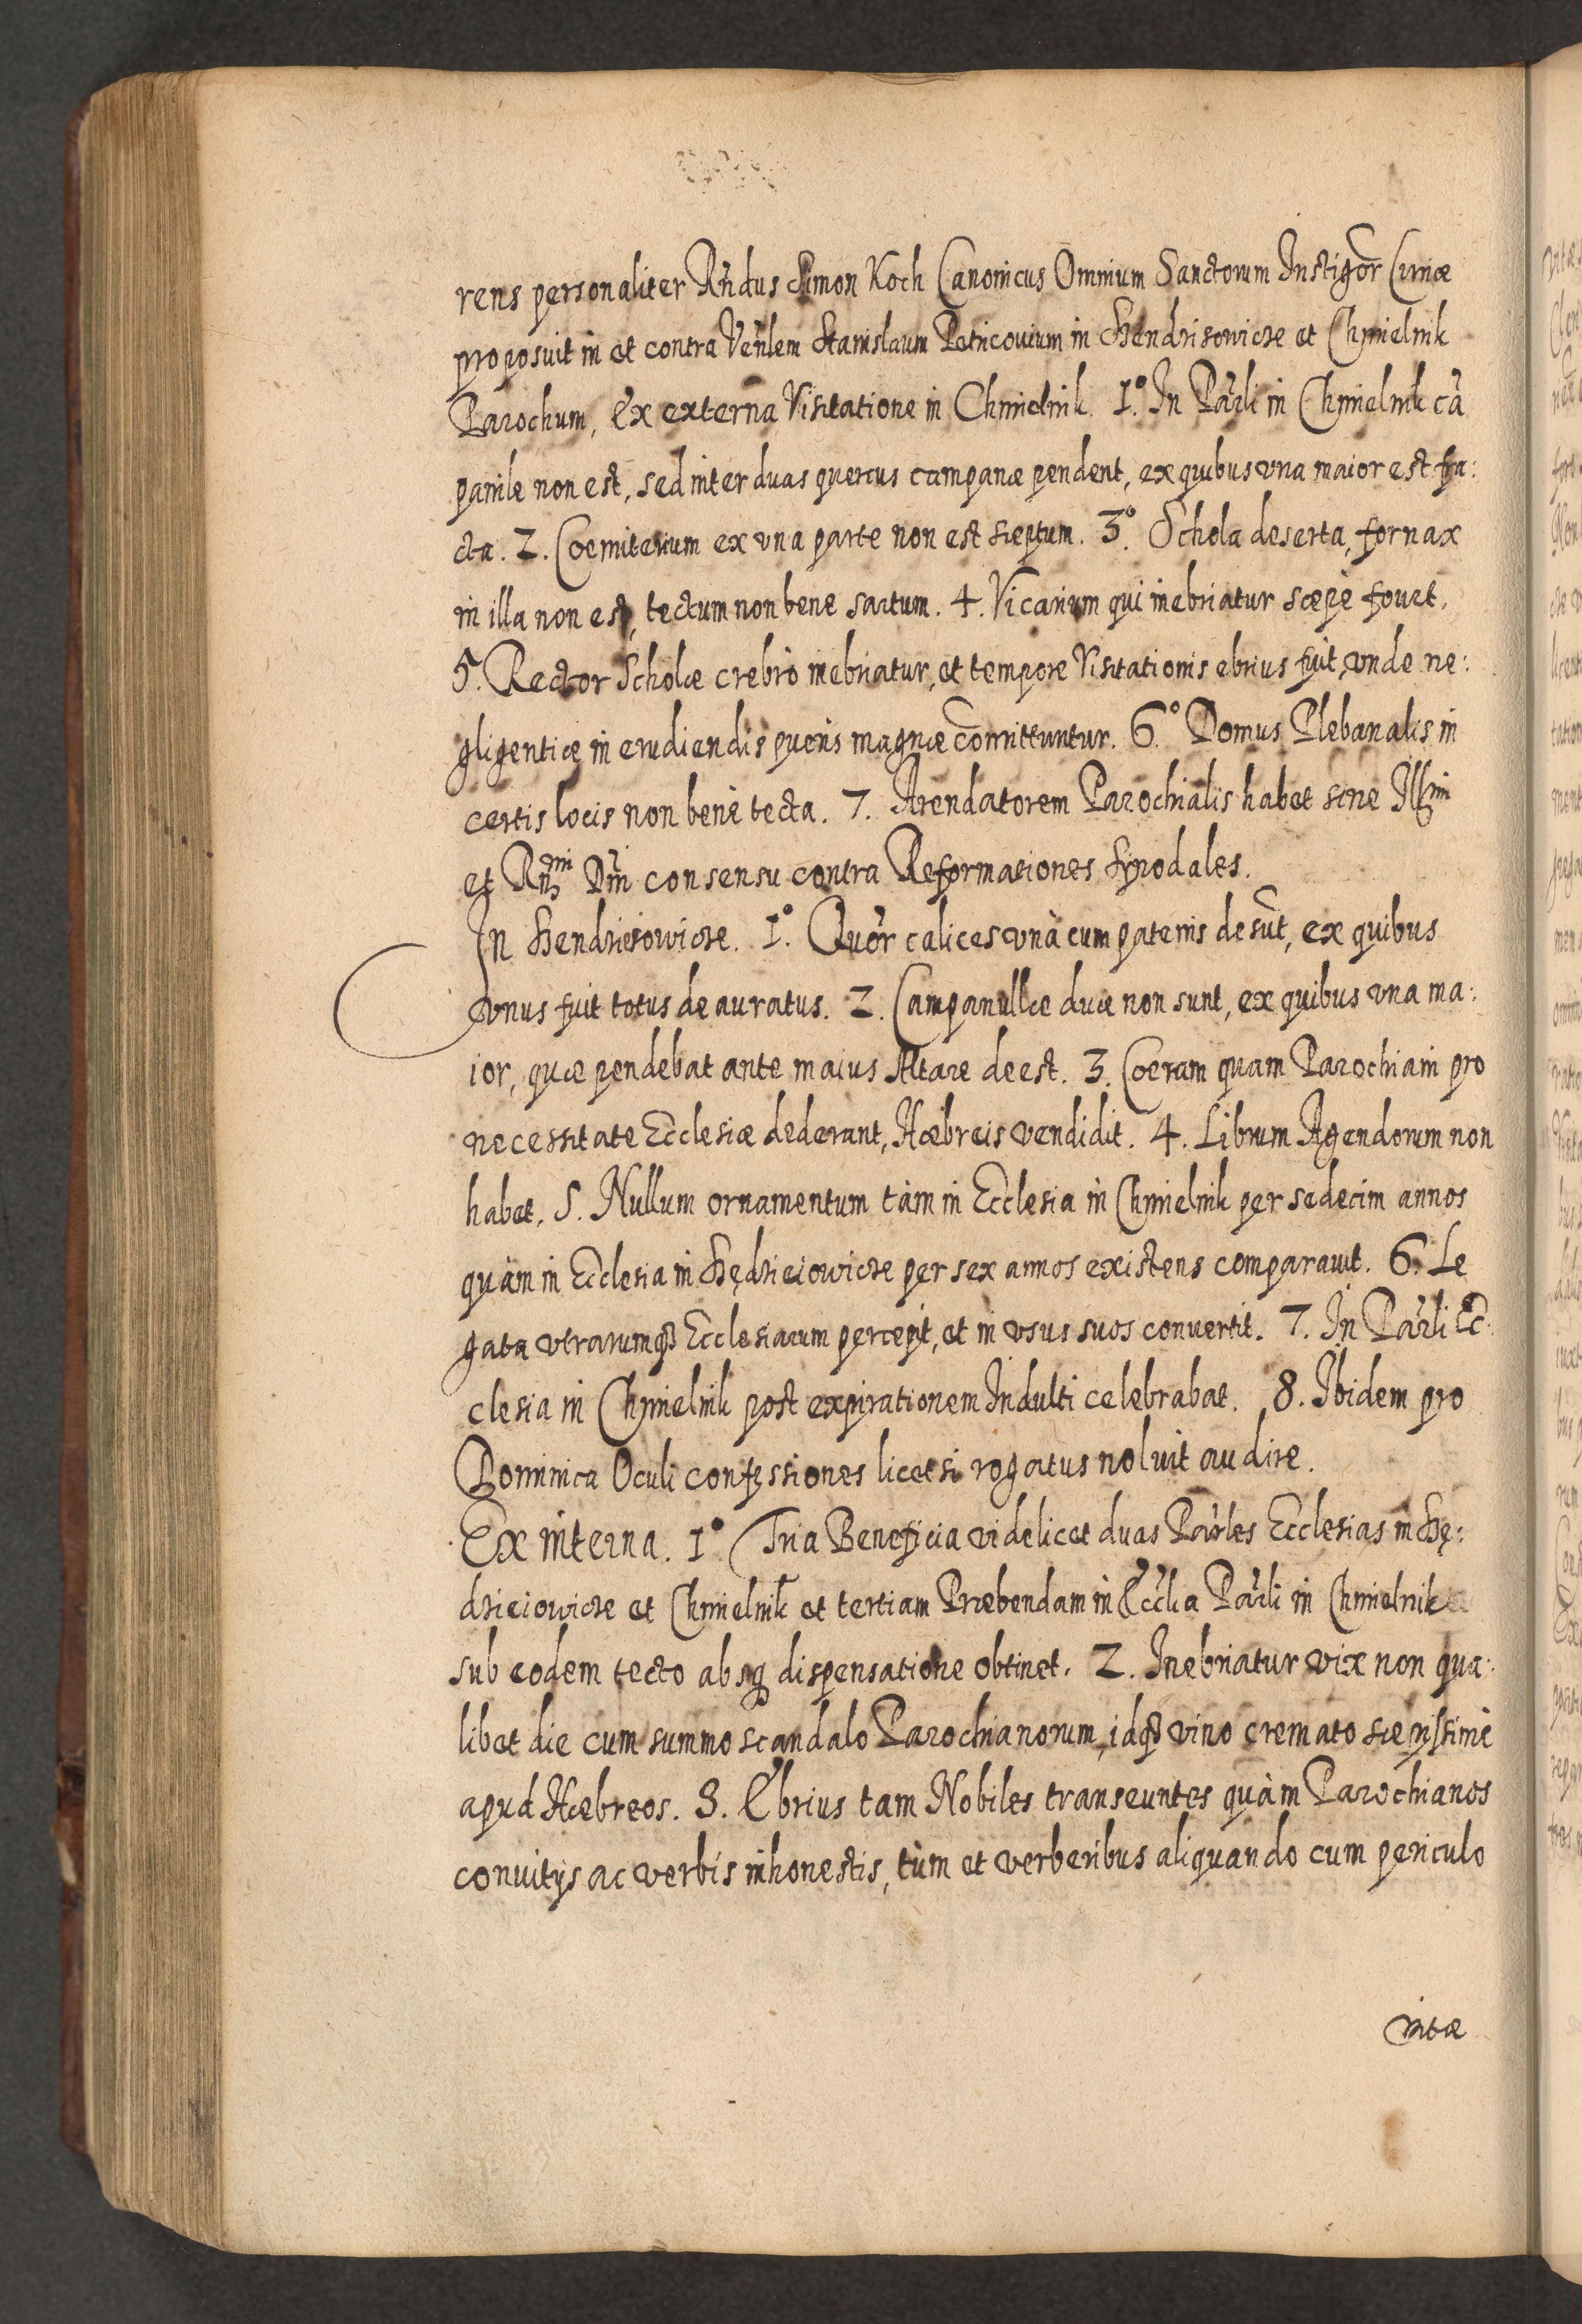 rens personaliter Rñdus Simon Koch Canonicus Omnium Sanctorum Instigõr Curiæ
proposuit in et contra Veñlem Stanislaum Petricovium in Hendrisowicze et Chmielnik
Parochum, Ex externa Visitatione in Chmielnik. 1.° In Pãrli in Chmielnik cã
panile non est, sed inter duas quercus campanæ pendent, ex quibus vna maior est fra:
cta. 2. Coemiterium ex vna parte non est sæptum. 3.° Schola deserta, fornax
in illa non est, tectum non bene sartum. 4. Vicarium qui inebriatur sæpè fouet.
5. Rector Scholæ crebrò inebriatur, et tempore Visitationis ebrius fuit, vnde ne:
gligentiæ in erudiendis pueris magnæ com̃ittuntur. 6.° Domus Plebanalis in
certis locis non benè tecta. 7. Arendatorem Parochialis habet sine Illmi
et Rñmi Dñi consensu contra Reformationes Synodales.
In Hendrieiowicze. 1.° Quõr calices vnà cum patenis desũt, ex quibus
vnus fuit totus deauratus. 2. Campanullæ duæ non sunt, ex quibus vna ma:
ior, quæ pendebat ante maius Altare deest. 3. Coeram quam Parochiani pro
necessitate Ecclesiæ dederant, Hæbreis vendidit. 4. Librum Agendorum non
habet. 5. Nullum ornamentum tàm in Ecclesia in Chmielnik per sedecim annos
quàm in Ecclesia in Hędzieiowicze per sex annos existens comparauit. 6. Le
gata vtrarumq3 Ecclesiarum percepit, et in vsus suos conuertit. 7. In Pãrli Ec
clesia in Chmielnik post expirationem Indulti celebrabat. 8. Ibidem pro
Dominica Oculi confessiones licet si rogatus noluit audire.
Ex interna. 1° Tria Beneficia videlicet duas Pãrles Ecclesias in Hę:
dzieiowicze et Chmielnik et tertiam Præbendam in Ecclia Pãrli in Chmielnik
sub eodem tecto absq3 dispensatione obtinet. 2. Inebriatur vix non qua:
libet die cum summo scandalo Parochianorum, idq3 vino cremato sæpissimè
apud Hæbreos. 3. Ebrius tam Nobiles transeuntes quàm Parochianos
conuitijs ac verbis inhonestis, tùm et verberibus aliquando cum periculo
vitæ